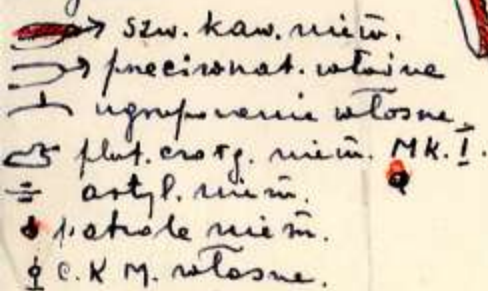 szw. kaw. niem.
przeciwnat. własne
ugrupowanie własne
plut. czołg. niem. MK. I.
artyl. niem.
patrole niem.
C. K M. własne.